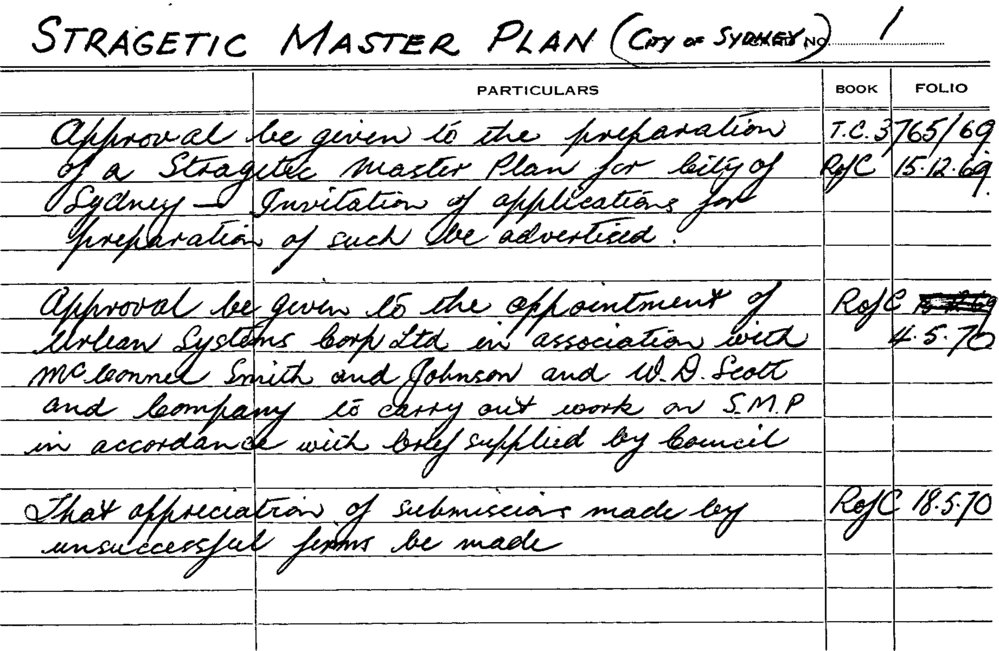 STRAGETIC MASTER PLAN (CITY OF SYDNEY) NO. 1
PARTICULARS BOOK FOLIO
Approval be given to the preparation T.C. 3765/69
of a Stragetic Master Plan for City of RofC 15.12.69.
Sydney — Invitation of applications for
preparation of such be advertised.
Approval be given to the appointment of RofC
Urban Systems Corp Ltd in association with 4.5.70
McConnel Smith and Johnson and W.D. Scott
and Company to carry out work on S.M.P
in accordance with brief supplied by Council
That appreciation of submissions made by RofC 18.5.70
unsuccessful firms be made